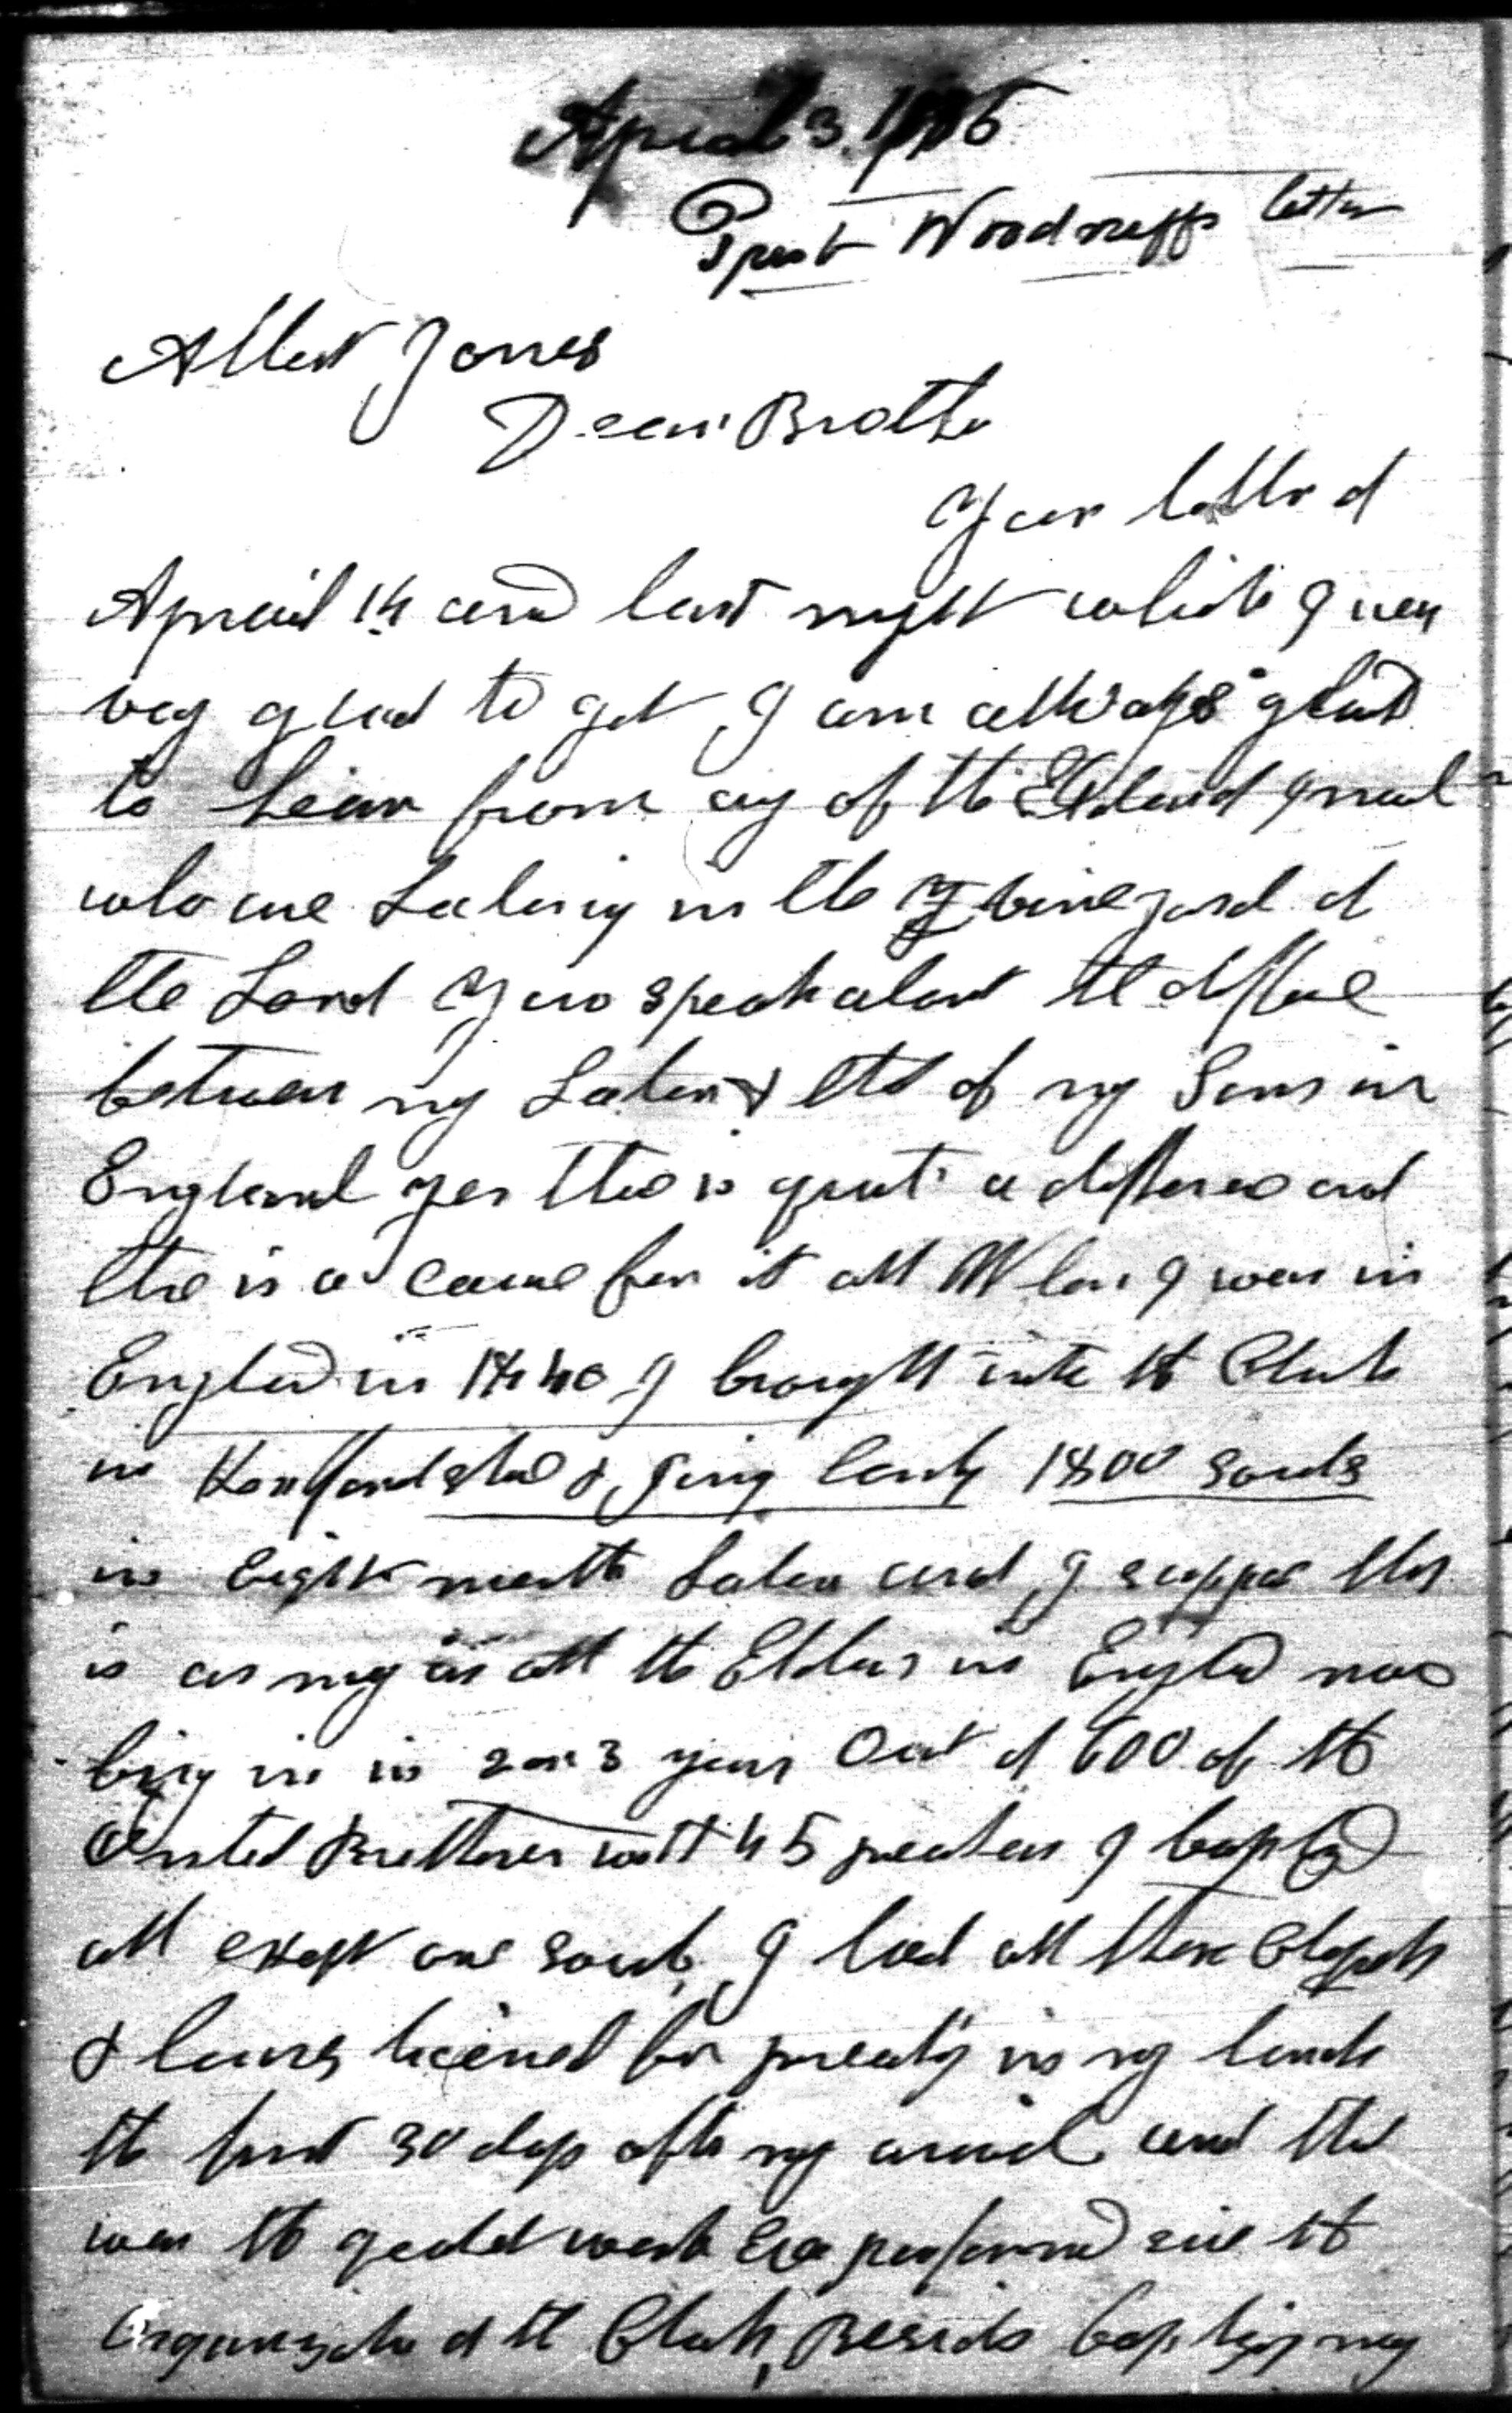 April 3. 1886
Prest Woodruffs letter
Albert Jones
Dear Brother
Your letter of
April 14 and last night which I was
very glad to get I am allways glad
to hear from any of the Elders abroad
who are Laboring in the vineyard of
the Lord You speak about the difference
between my Labor & that of my Sons in
England yes there is quite a difference and
there is a cause for it all When I was in
England in 1840 I brought into the Church
in Herefordshire & joining County 1800 souls
in Eight months Labor and I suppose this
is as many as all the Elders in England now
bring in in 2 or 3 years Out of 600 of the
United Brethren with 45 preachers I baptized
all except one soul, I had all there Chapels
& houses licened for preaching in my hands
the first 30 days after my arrival and this
was the greatest work Ever performed since the
Organization of the Church, Besides baptizing many